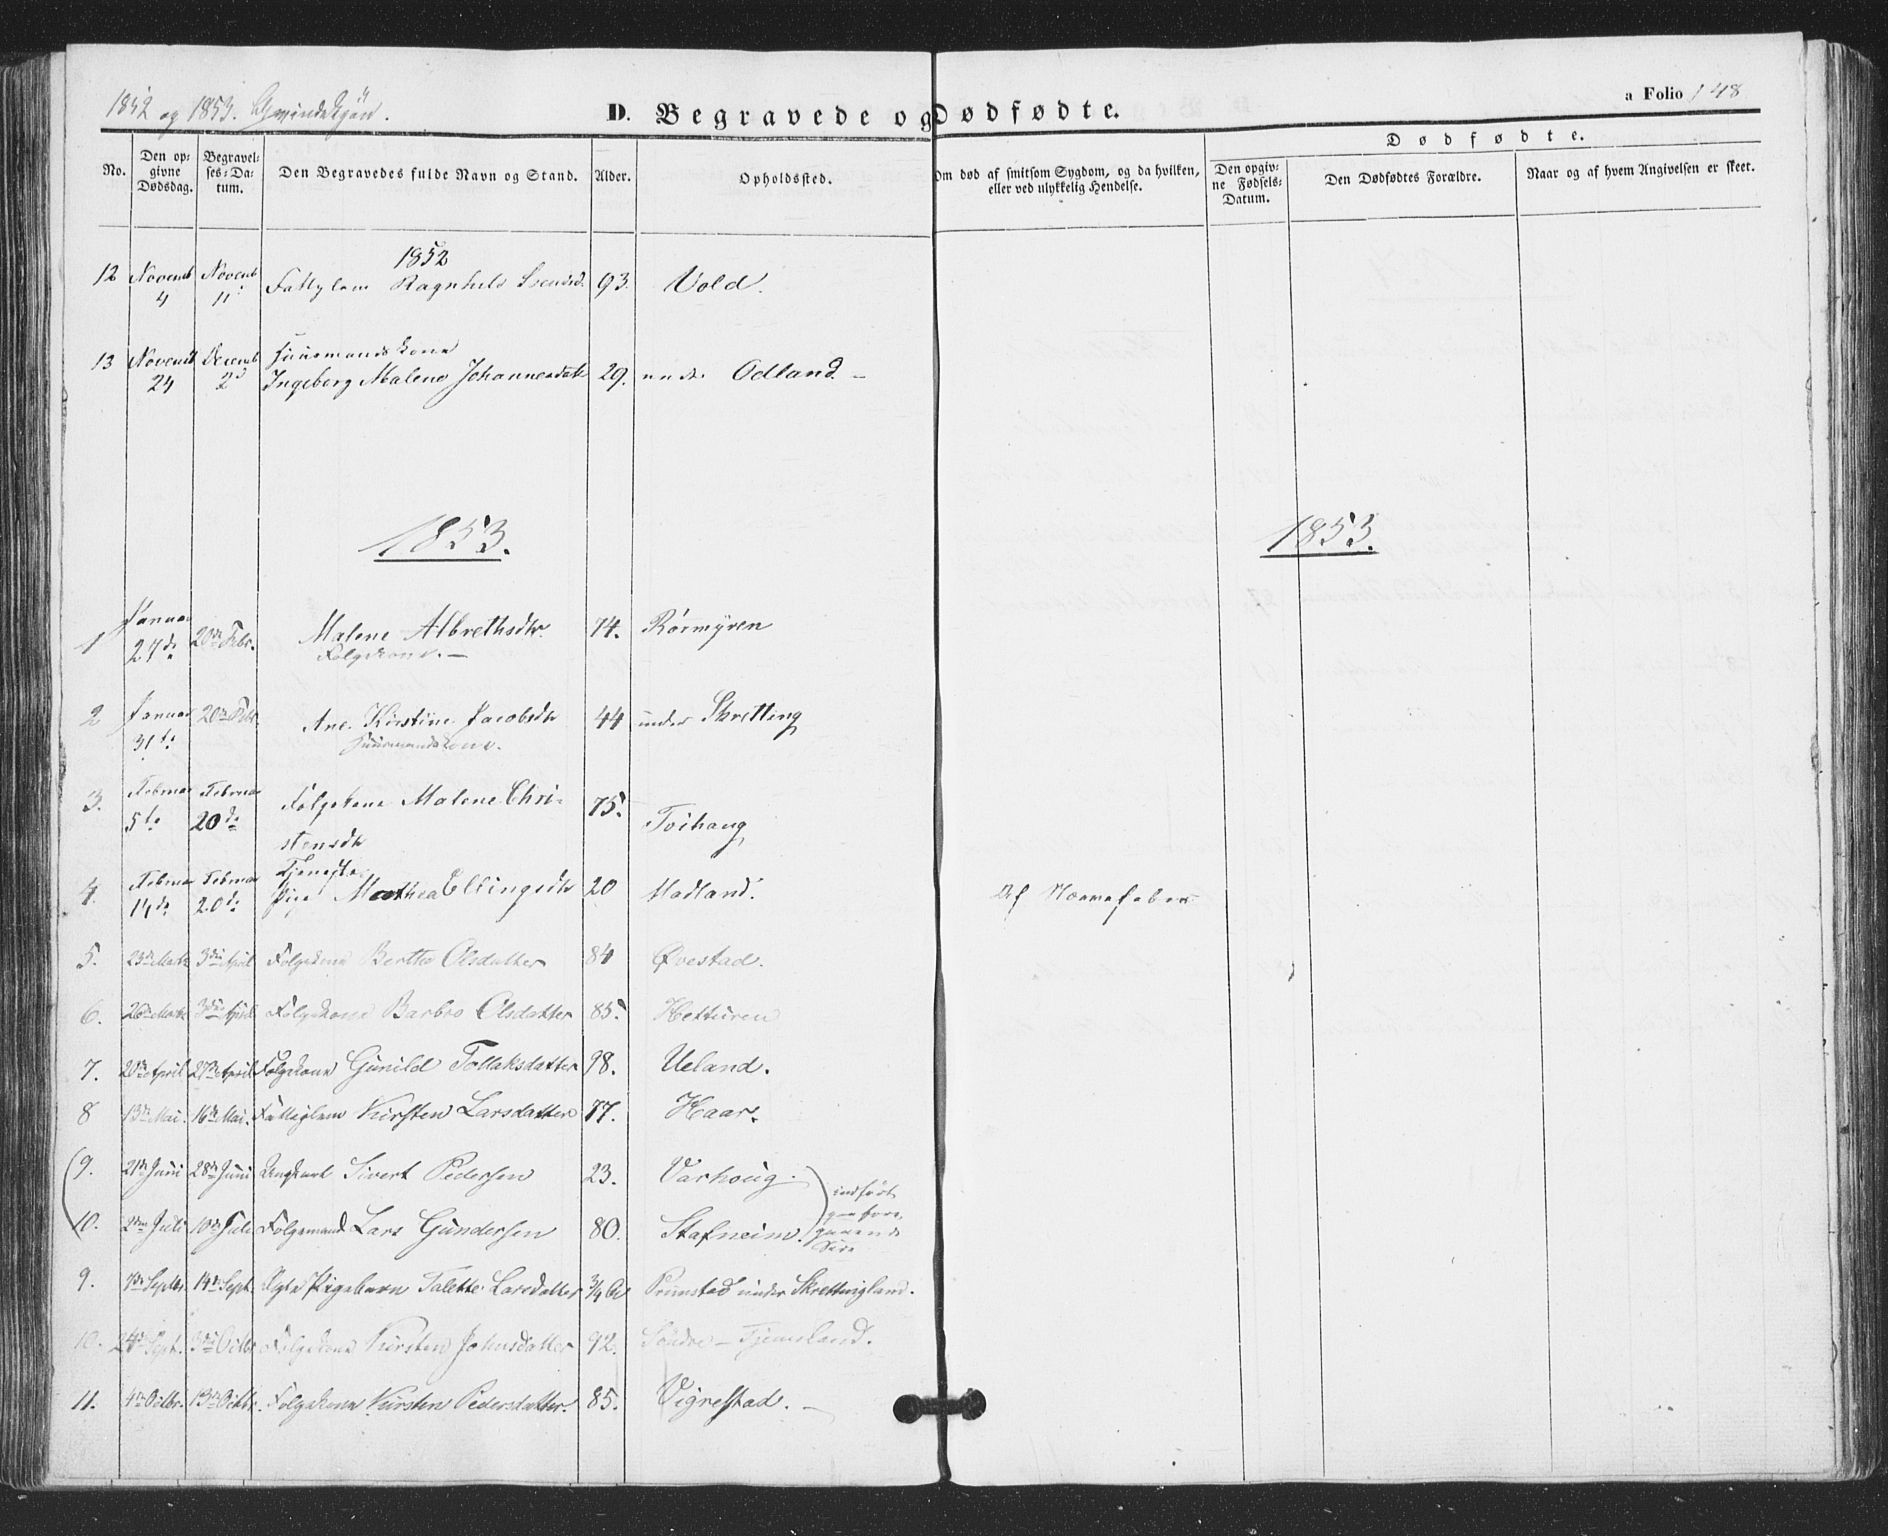 1852 og 1853. Qvindekjön.
D. Begravede og Dødfødte.
a Folio 148
No.
Den opgivne Dødsdag.
Begravelses-Datum.
Den Begravedes fulde Navn og Stand.
Alder.
Opholdssted.
Om død af smitsom Sygdom, og da hvilken, eller ved ulykkelig Hendelse.
Dødfødte.
Den opgivne Fødsels-Datum.
Den Dødfødtes Forældre.
Naar og af hvem Angivelsen er skeet.
1852
12 Novemb 4 Novemb 11 Fattiglem Ragnhild 93. Vold.
13 Novemb 24 Decemb 2d Huusmandskone Ingeborg Malene Johannesdatr 29. under Odland. –
1853. 1853.
1 Januar 27de 20de Febr. Malene Albrethsdtr. Folgekone. – 74. Rörmyren
2 Januar 31te 20de Febr. Ane Kirstine Jacobsdtr Huusmandskone. 44 under Skretting
3. Februar 5te Februar 20de Folgekone Malene Christensdtr 75. Toihaug
4. Februar 14de Februar 20de Tjenestepige Mathea Ellingsdtr 20 Madland. Af Nervefeber
5. 23de Marts 3die April Folgekone Berthe Olsdatter 84 Øvestad.
6. 26de Marts 3die April Folgekone Barbro Olsdatter 85. Hetturen
7. 20de April 27de April Folgekone Gunild Tollaksdatter 98. Ueland.
8 13de Mai. 16de Mai. Fattiglem Kirsten Larsdatter 77. Haar.
(9. 21de Juni 28de Juni Ungkarl Sivert Pedersen 23. Varhoug.
(10. 2den Juli 10de Juli Folgemand Lars Gundersen 80. Stafneim.) indført paa foregaaende Side
9. 7de Septbr. 14de Sept. Ægte Pigebarn Talette Larsdatter 3/4 Aar Prumstad under Skrettingland.
10. 24de Sept. 3die Octbr Folgekone Kirsten Johnsdatter 92. Söndre – Tjemsland.
11. 4de Octbr. 13de Octbr. Folgekone Kirsten Pedersdatter. 85. Vigrestad. –